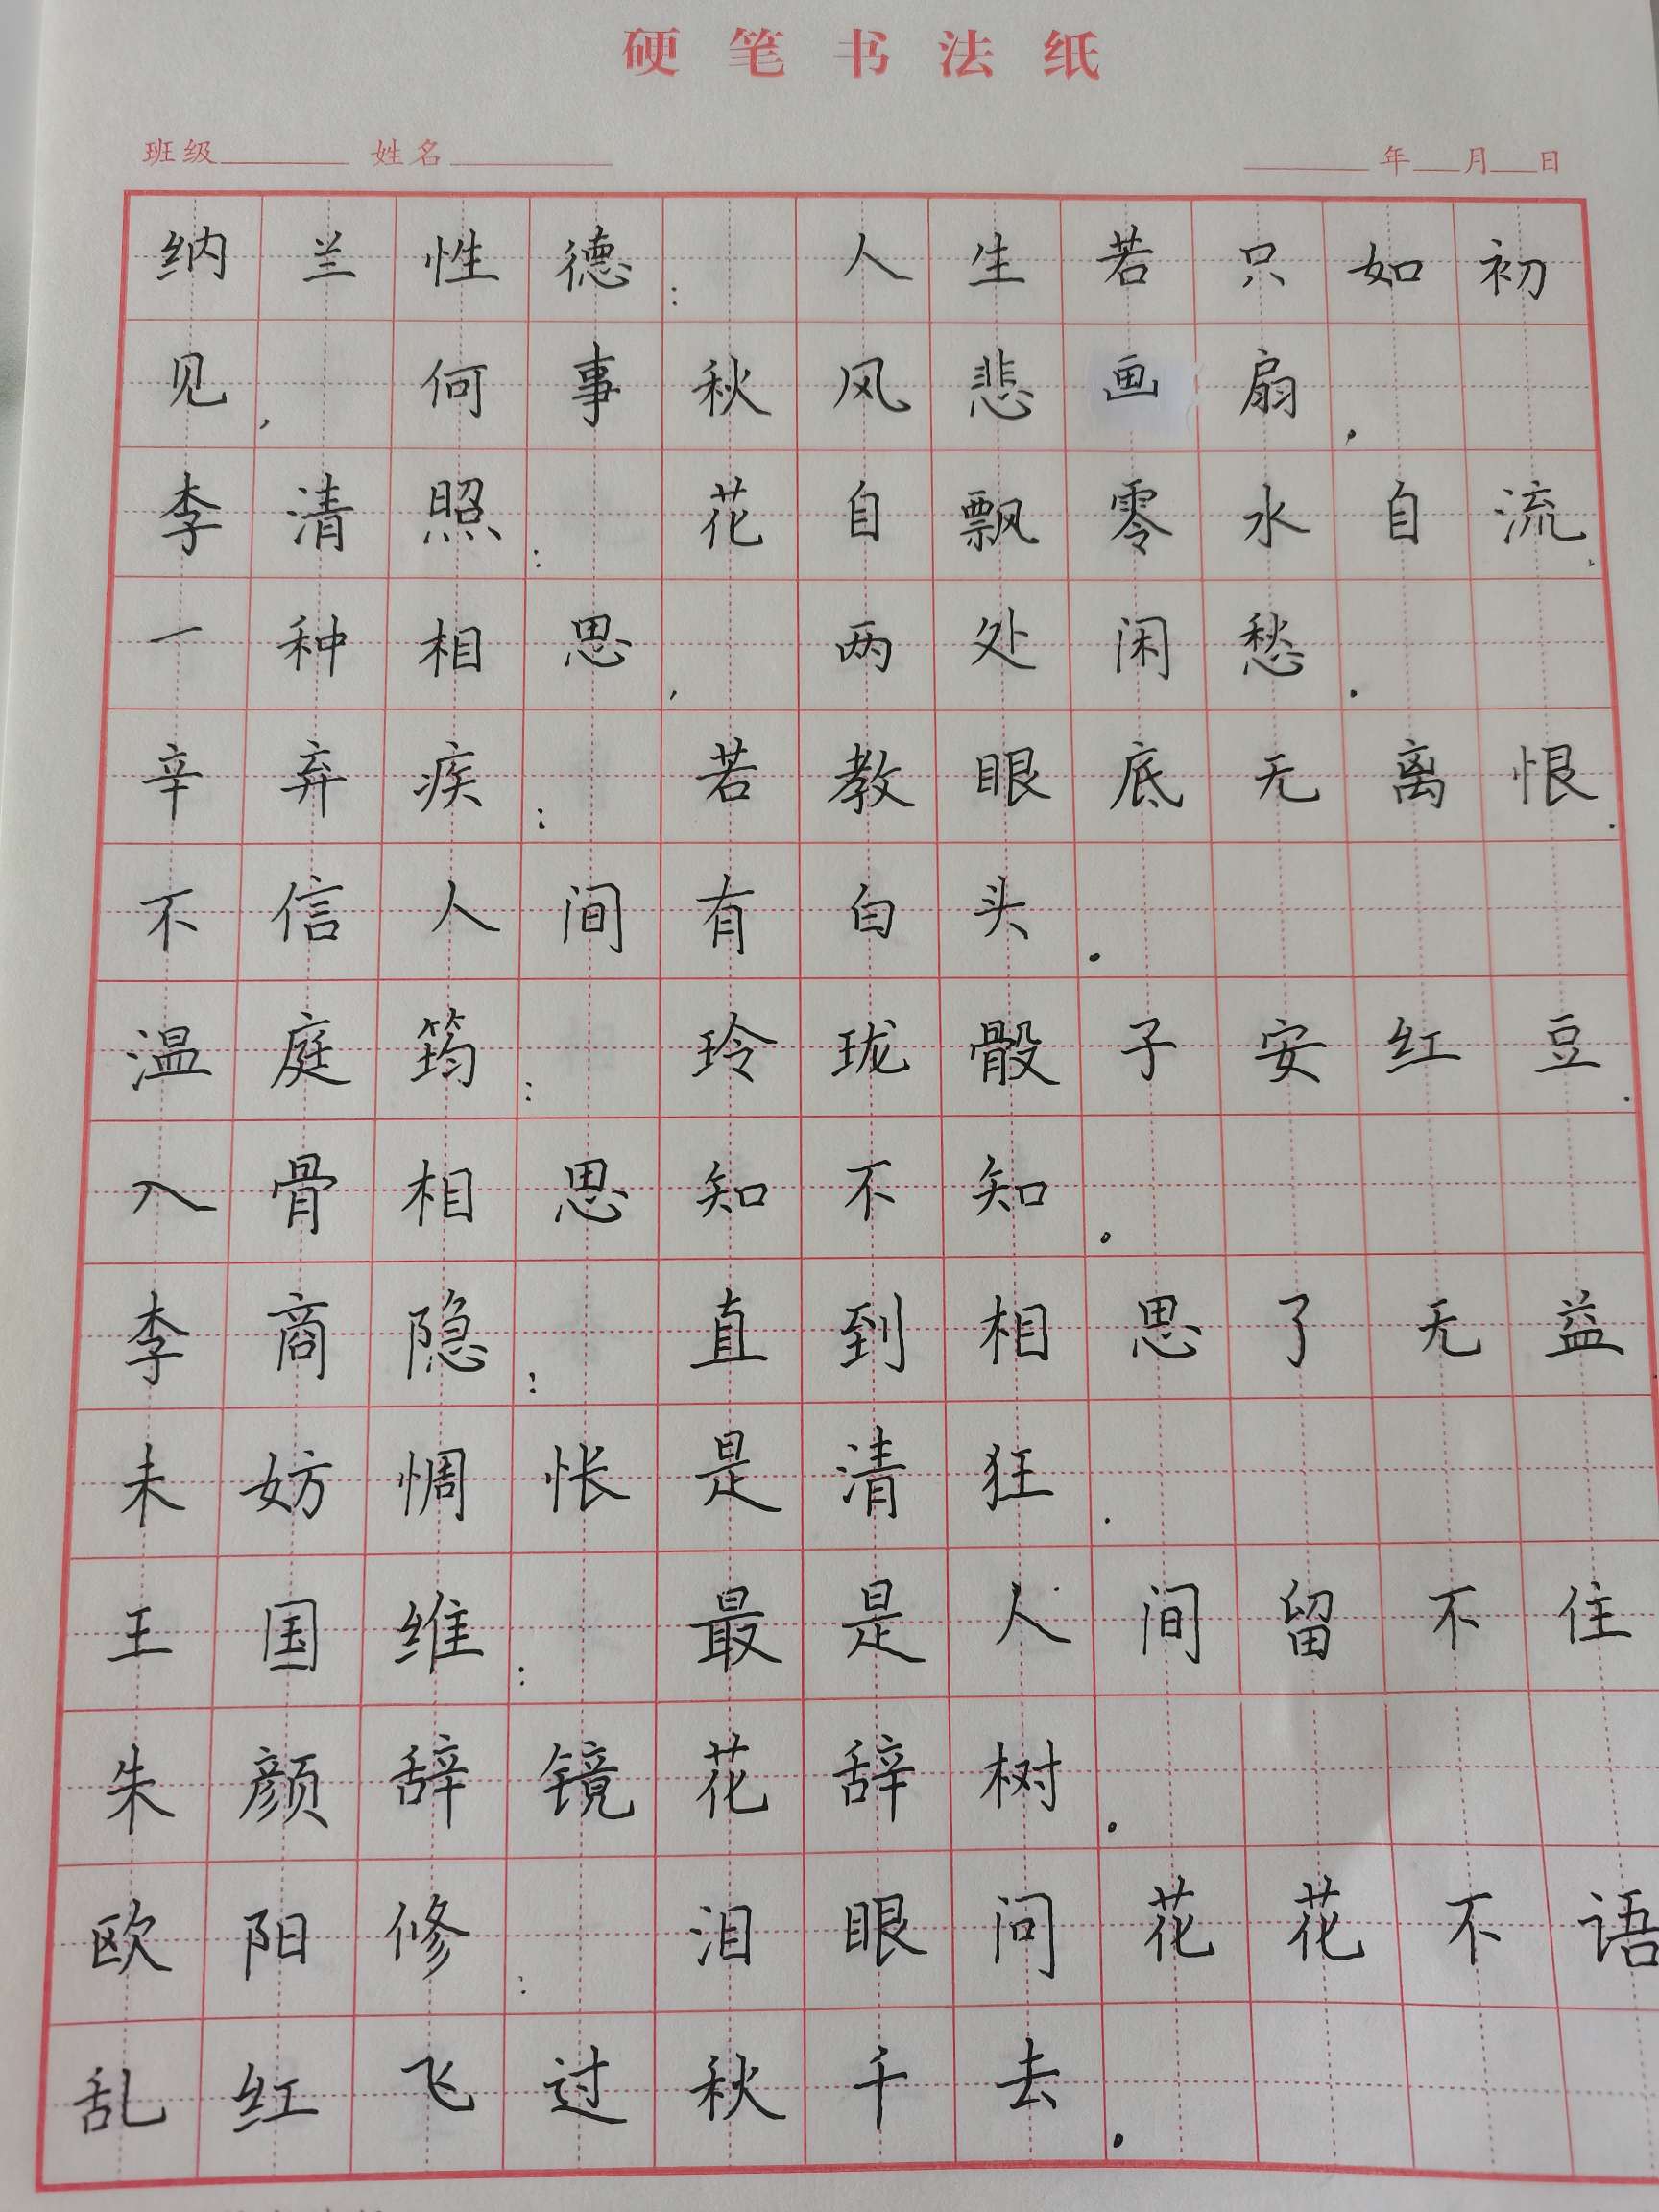 硬笔书法纸
班级 姓名 年 月 日
纳兰性德: 人生若只如初
见, 何事秋风悲画扇.
李清照: 花自飘零水自流.
一种相思, 两处闲愁.
辛弃疾: 若教眼底无离恨.
不信人间有白头.
温庭筠: 玲珑骰子安红豆.
入骨相思知不知.
李商隐: 直到相思了无益
未妨惆怅是清狂.
王国维: 最是人间留不住
朱颜辞镜花辞树.
欧阳修: 泪眼问花花不语
乱红飞过秋千去.